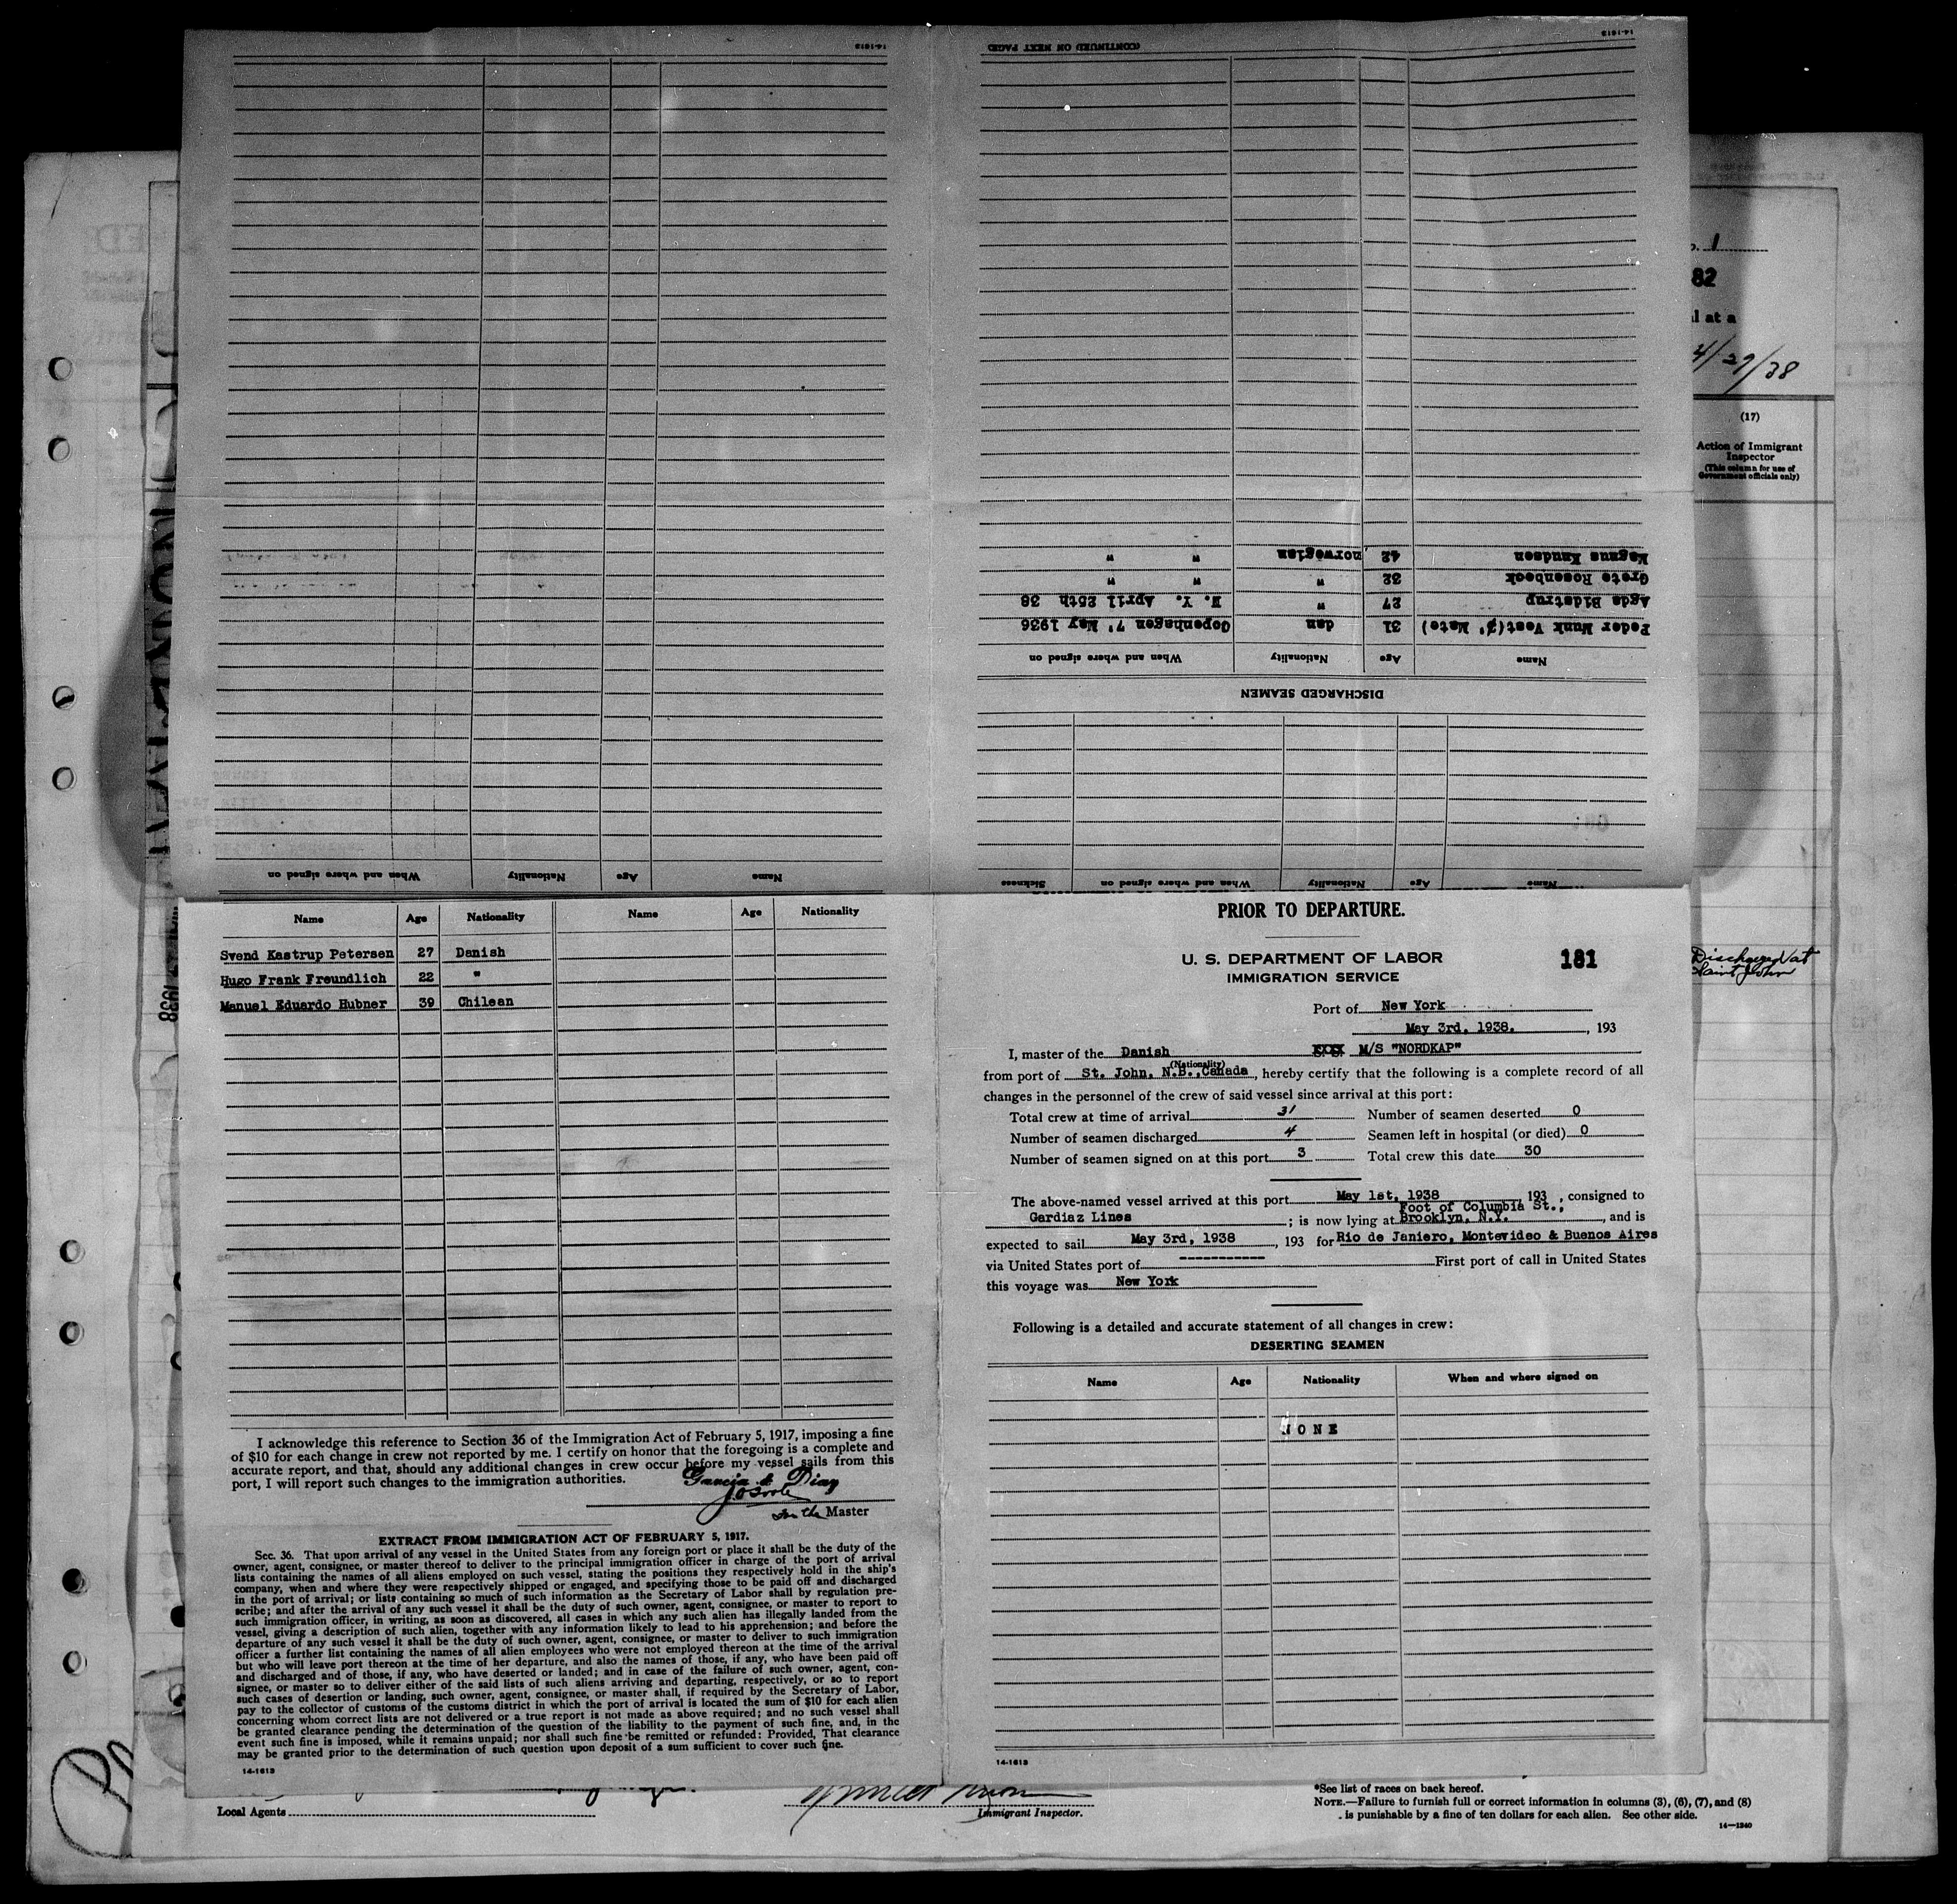 14-1613
(CONTINUED ON NEXT PAGE)
14-1613
Name Age Nationality When and where signed on
DISCHARGED SEAMEN
Name Age Nationality When and where signed on
Peder Munk Vest( ' Mate) 31 dan Copenhagen 7' May 1936
Agda Bidstrup 27 " N. Y. April 25th 38
Grete Rosenbeck 32 " " "
Magnus Knudsen 42 norwegian " "
Name Age Nationality When and where signed on Sickness
1
82
l at a
4/29/38
(17)
Action of Immigrant
Inspector
(This column for use of
Government officials only)
Discharged at
Saint John
Name Age Nationality Name Age Nationality
Svend Kastrup Petersen 27 Danish
Hugo Frank Freundlich 22 "
Manuel Eduardo Hubner 39 Chilean
I acknowledge this reference to Section 36 of the Immigration Act of February 5, 1917, imposing a fine
of $10 for each change in crew not reported by me. I certify on honor that the foregoing is a complete and
accurate report, and that, should any additional changes in crew occur before my vessel sails from this
port, I will report such changes to the immigration authorities.
Garcia & Diaz
for the Master
EXTRACT FROM IMMIGRATION ACT OF FEBRUARY 5, 1917.
Sec. 36. That upon arrival of any vessel in the United States from any foreign port or place it shall be the duty of the
owner, agent, consignee, or master thereof to deliver to the principal immigration officer in charge of the port of arrival
lists containing the names of all aliens employed on such vessel, stating the positions they respectively hold in the ship's
company, when and where they were respectively shipped or engaged, and specifying those to be paid off and discharged
in the port of arrival; or lists containing so much of such information as the Secretary of Labor shall by regulation pre-
scribe; and after the arrival of any such vessel it shall be the duty of such owner, agent, consignee, or master to report to
such immigration officer, in writing, as soon as discovered, all cases in which any such alien has illegally landed from the
vessel, giving a description of such alien, together with any information likely to lead to his apprehension; and before the
departure of any such vessel it shall be the duty of such owner, agent, consignee, or master to deliver to such immigration
officer a further list containing the names of all alien employees who were not employed thereon at the time of the arrival
but who will leave port thereon at the time of her departure, and also the names of those, if any, who have been paid off
and discharged and of those, if any, who have deserted or landed; and in case of the failure of such owner, agent, con-
signee, or master so to deliver either of the said lists of such aliens arriving and departing, respectively, or so to report
such cases of desertion or landing, such owner, agent, consignee, or master shall, if required by the Secretary of Labor,
pay to the collector of customs of the customs district in which the port of arrival is located the sum of $10 for each alien
concerning whom correct lists are not delivered or a true report is not made as above required; and no such vessel shall
be granted clearance pending the determination of the question of the liability to the payment of such fine, and, in the
event such fine is imposed, while it remains unpaid; nor shall such fine be remitted or refunded: Provided, That clearance
may be granted prior to the determination of such question upon deposit of a sum sufficient to cover such fine.
14-1613
PRIOR TO DEPARTURE.
U. S. DEPARTMENT OF LABOR
IMMIGRATION SERVICE
181
Port of New York
May 3rd, 1938. , 193
I, master of the Danish M/S "NORDKAP"
(Nationality)
from port of St. John, N.B., Canada, hereby certify that the following is a complete record of all
changes in the personnel of the crew of said vessel since arrival at this port:
Total crew at time of arrival 31 Number of seamen deserted 0
Number of seamen discharged 4 Seamen left in hospital (or died) 0
Number of seamen signed on at this port 3 Total crew this date 30
The above-named vessel arrived at this port May 1st, 1938 , 193 , consigned to
Gardiaz Lines ; is now lying at Foot of Columbia St., Brooklyn, N.Y. , and is
expected to sail May 3rd, 1938 , 193 for Rio de Janiero, Montevideo & Buenos Aires
via United States port of ----------- First port of call in United States
this voyage was New York
Following is a detailed and accurate statement of all changes in crew:
DESERTING SEAMEN
Name Age Nationality When and where signed on
NONE
14-1613
Local Agents
Immigrant Inspector.
*See list of races on back hereof.
NOTE.—Failure to furnish full or correct information in columns (3), (6), (7), and (8)
is punishable by a fine of ten dollars for each alien. See other side.
14—1240